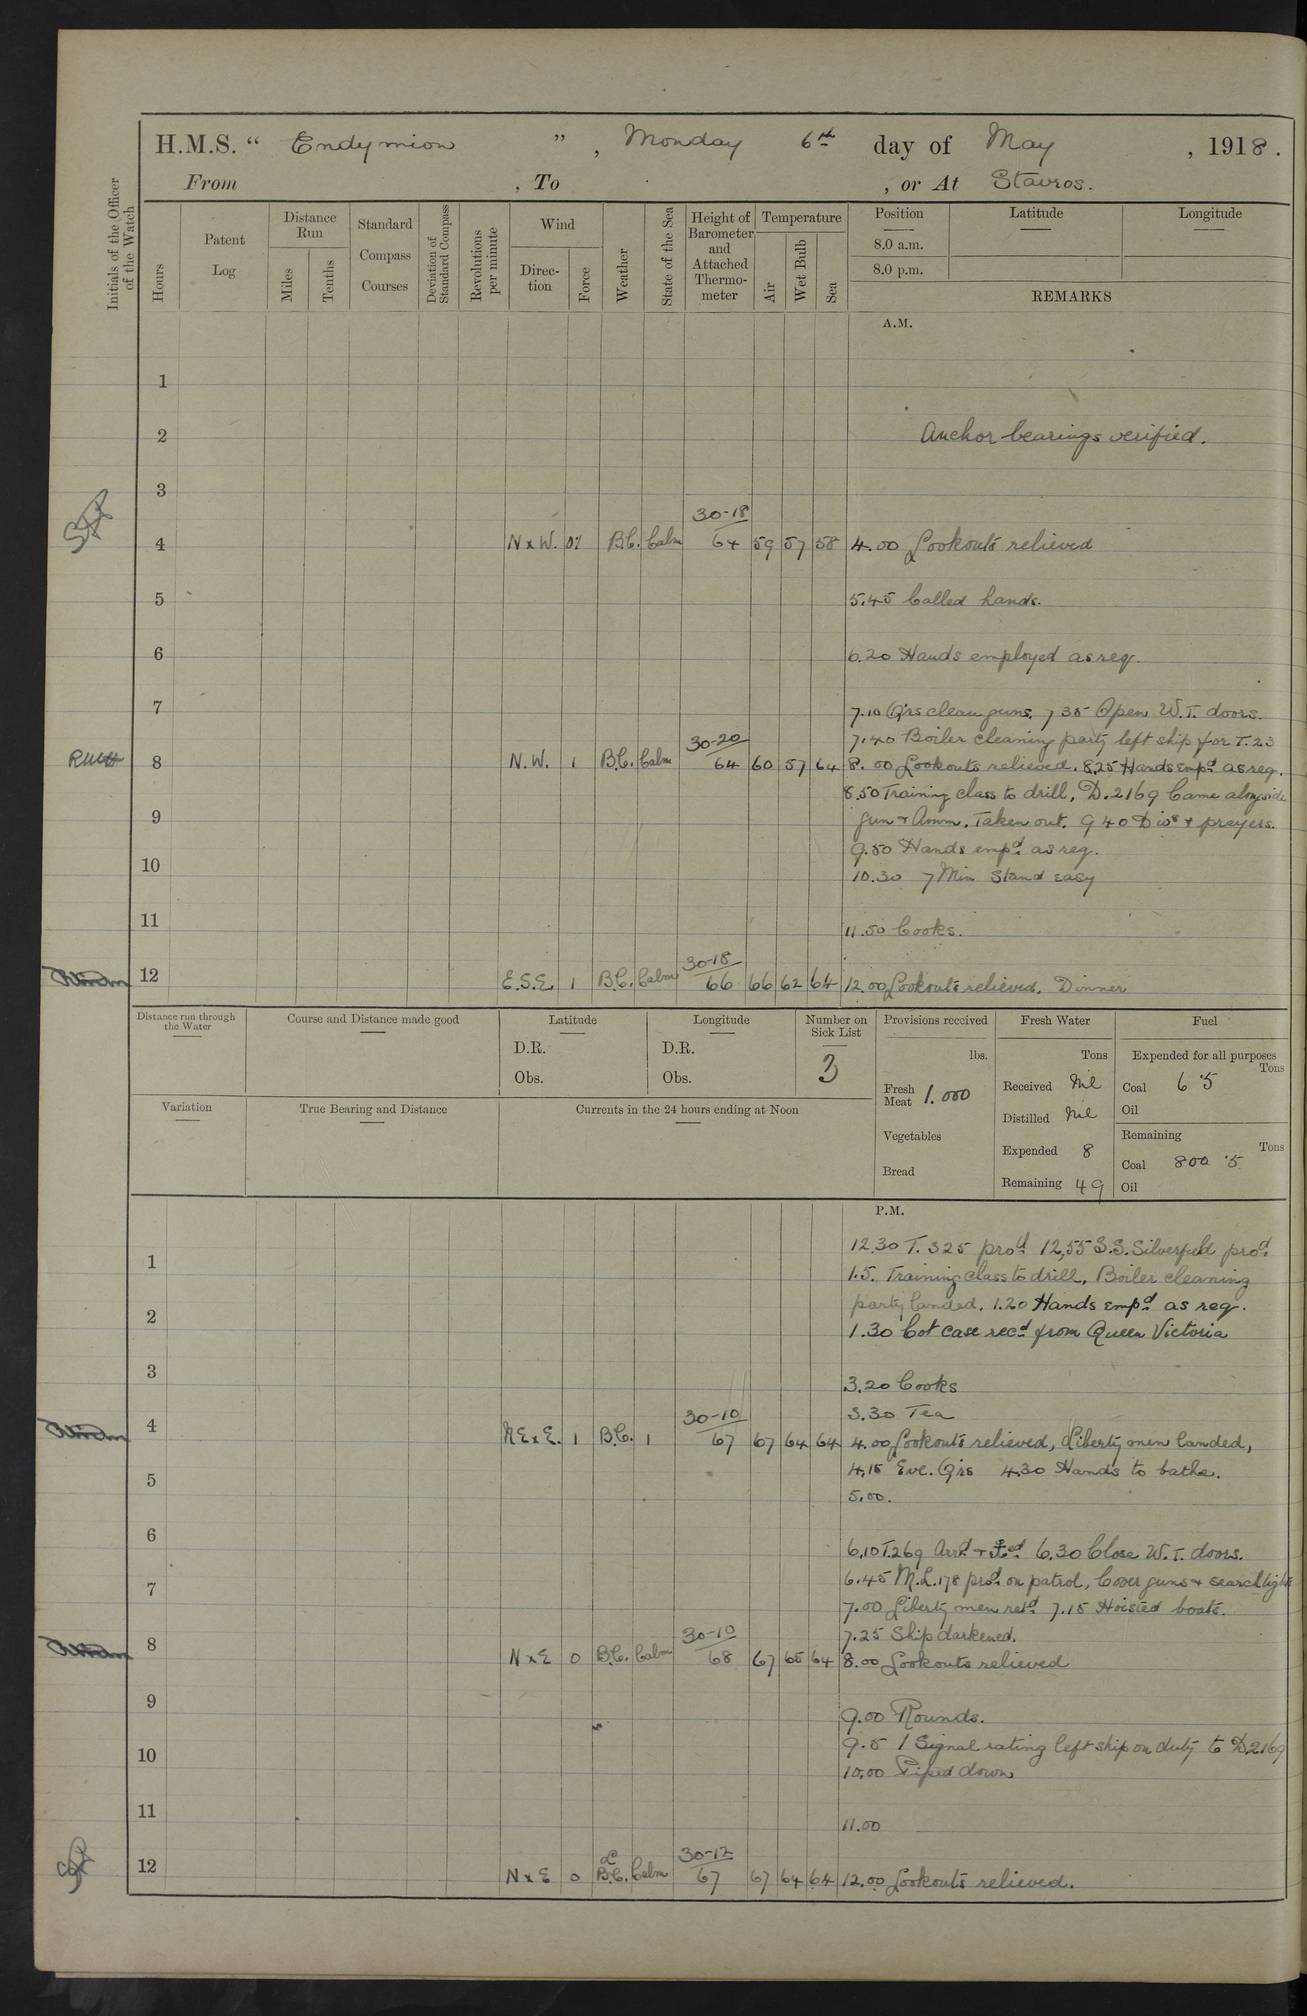 H.M.S. “ Endymion ” , Monday 6th day of May , 1918 .
From , To , or At Stavros.
Initials of the Officer of the Watch
Hours
Patent Log
Distance Run
Miles
Tenths
Standard Compass Courses
Deviation of Standard Compass
Revolutions per minute
Wind
Direc-tion
Force
Weather
State of the Sea
Height of Barometer and Attached Thermo-meter
Temperature
Air
Wet Bulb
Sea
Position
8.0 a.m.
8.0 p.m.
Latitude
Longitude
REMARKS
A.M.
1
2 Anchor bearings verified.
3
30-18
4 N x W. 01 B.C. Calm 64 59 57 58 4.00 Lookouts relieved
5 5.45 Called hands.
6 6.20 Hands employed as req.
7 7.10 Qrs clean guns. 7 35 Open W.T. doors.
30-20 7.40 Boiler cleaning party left ship for T.23
8 N.W. 1 B.C. Calm 64 60 57 64 8.00 Lookouts relieved. 8.25 Hands empd as req.
8.50 Training class to drill, D.2169 Came alongside
9 gun + Amm. Taken out. 9 40 Divs + prayers.
9.50 Hands empd as req.
10 10.30 7 Min Stand easy
11 11.50 Cooks.
30-18
12 E.S.E. 1 B.C. Calm 66 66 62 64 12.00 Lookouts relieved. Dinner
Distance run through the Water
Course and Distance made good
Latitude
D.R.
Obs.
Longitude
D.R.
Obs.
Number on Sick List
3
Provisions received
lbs.
Fresh Meat 1.000
Vegetables
Bread
Fresh Water
Tons
Received Nil
Distilled Nil
Expended 8
Remaining 49
Fuel
Expended for all purposes
Tons
Coal 6 .5
Oil
Remaining
Tons
Coal 800 .5
Oil
Variation
True Bearing and Distance
Currents in the 24 hours ending at Noon
P.M.
12.30 T. 325 procd 12,55 S.S. Silverfield procd
1 1.5. Training class to drill, Boiler cleaning
party landed. 1.20 Hands empd as req.
2 1.30 Cot case recd from Queen Victoria
3 3.20 Cooks
30-10 3.30 Tea
4 NE x E. 1 B.C. 1 67 67 64 64 4.00 Lookouts relieved, Liberty men landed,
4.15 Eve. Qrs 4.30 Hands to bathe.
5 5.00.
6 6.10 T.269 Arrd + 6.30 Close W.T. doors.
6.45 M.L.178 procd on patrol, Cover guns + searchlights
7 7.00 Liberty men retd 7.15 Hoisted boats.
30-10 7.25 Ship darkened.
8 N x E 0 B.C. Calm 68 67 65 64 8.00 Lookouts relieved
9 9.00 Rounds.
9.5 1 Signal rating left ship on duty to D2169
10 10.00 Piped down
11 11.00
30-12
12 N x E 0 B.C. Calm 67 67 64 64 12.00 Lookouts relieved.